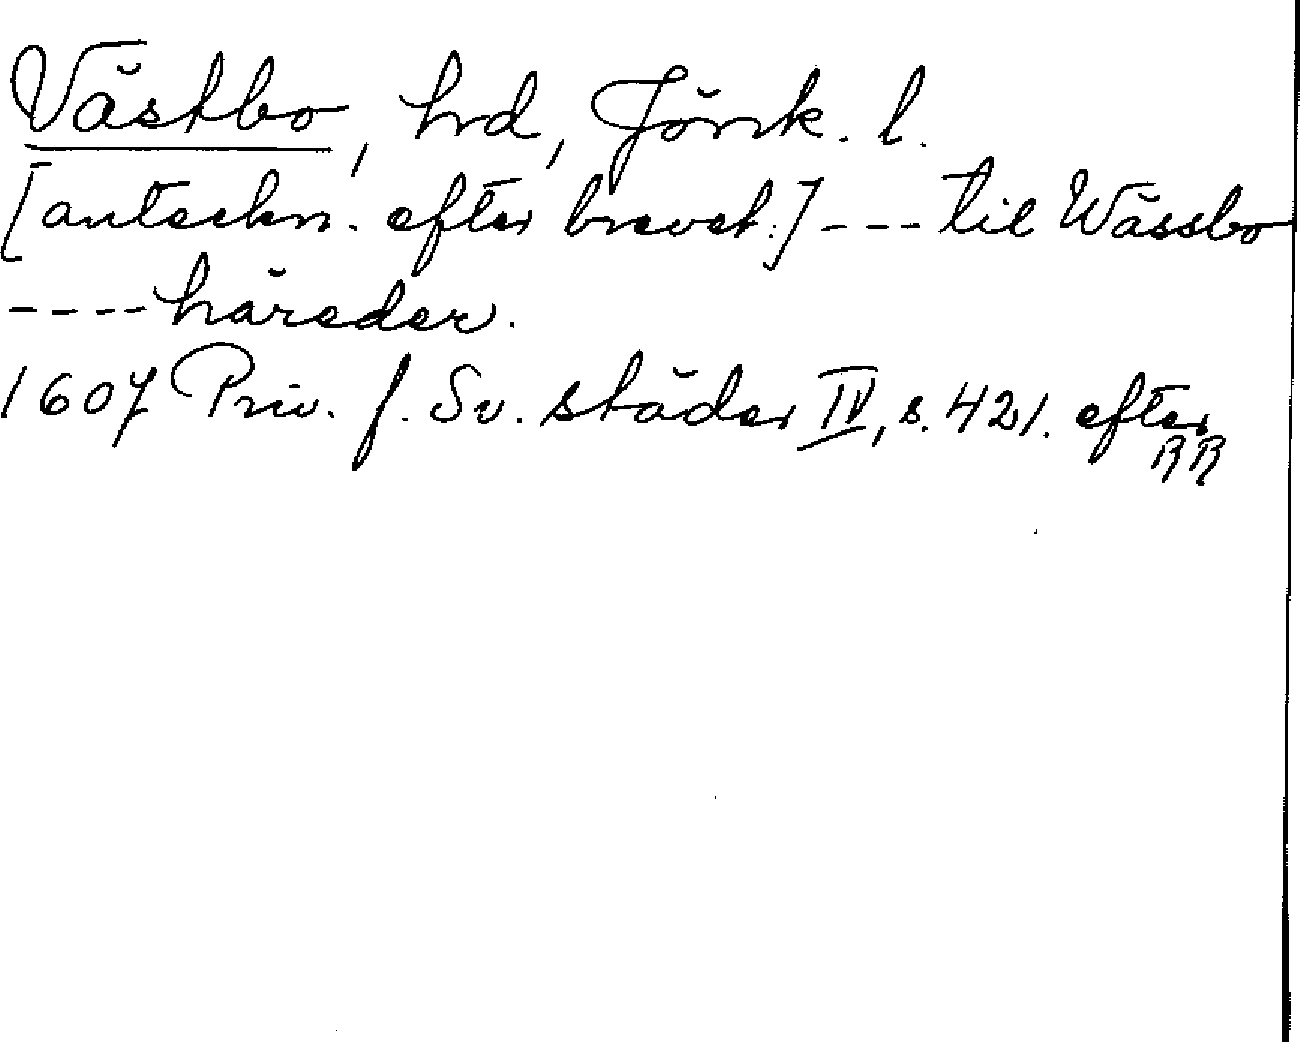 Västbo, hrd, Jönk. l.
[anteckn. efter brevet:] --- til Wässbo
---- häreder.
1607 Priv. f. Sv. städer IV, s. 421. efter
RR